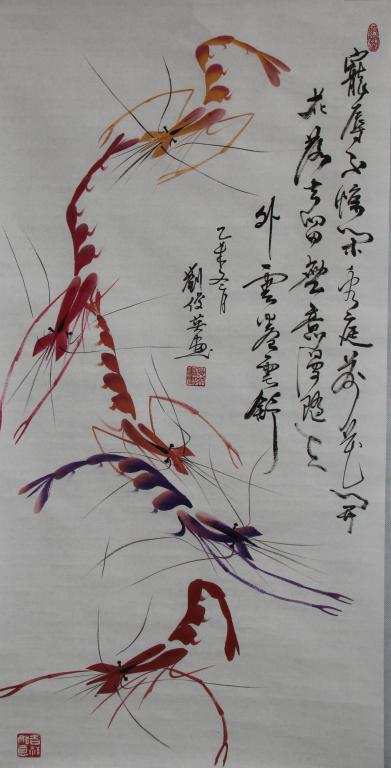 寵辱不惊閑看庭前花開
花落去留無意漫隨天
外雲卷雲舒
乙未冬月
劉俊英畫